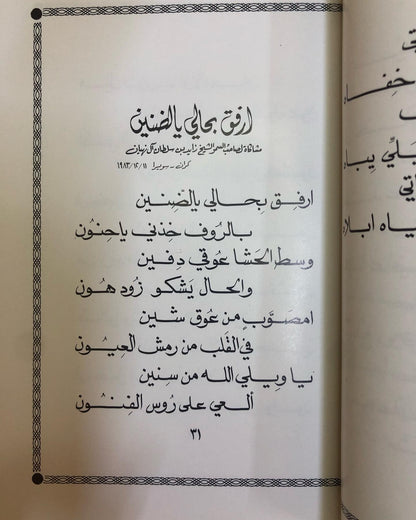 ارفق بحالي يالضنين
مشاكاة لصاحب السمو الشيخ زايد بن سلطان آل نهيان
كران - سويسرا ١٩٨٣/١٢/١١
ارفِق بحالي يالضِنين
بالرُوف خِذني ياحِنوُن
وسط الحَشا عوقي دِفين
والحال يَشكو زُود هُون
امصَوَّبٍ من عُوق شَين
في القَلب من رمش العيون
يا ويلي الله من سنين
ألعي على رُوس الفِنُون
٣١
تي
خفاه
لّي يباه
اتي
ياه ابلاه